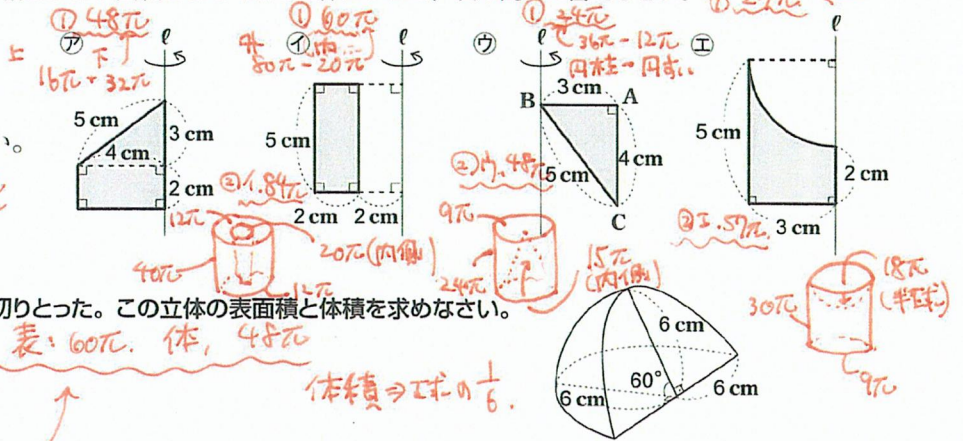 ① 48π
㋐
上
下
16π+32π
ℓ
5 cm
4 cm
3 cm
2 cm
① 60π
㋑
外
80π-20π
ℓ
5 cm
2 cm
2 cm
② イ. 84π
12π
40π
20π(内側)
12π
① 24π
㋒
36π-12π
円柱-円すい
ℓ
3 cm
B
A
4 cm
5 cm
C
② ウ. 48π
9π
24π
15π
(内側)
㋓
ℓ
5 cm
2 cm
3 cm
② エ. 57π
18π
(半球)
30π
9π
い。
切りとった。この立体の表面積と体積を求めなさい。
表: 60π. 体, 48π
体積⇒球の1/6.
6 cm
60°
6 cm
6 cm